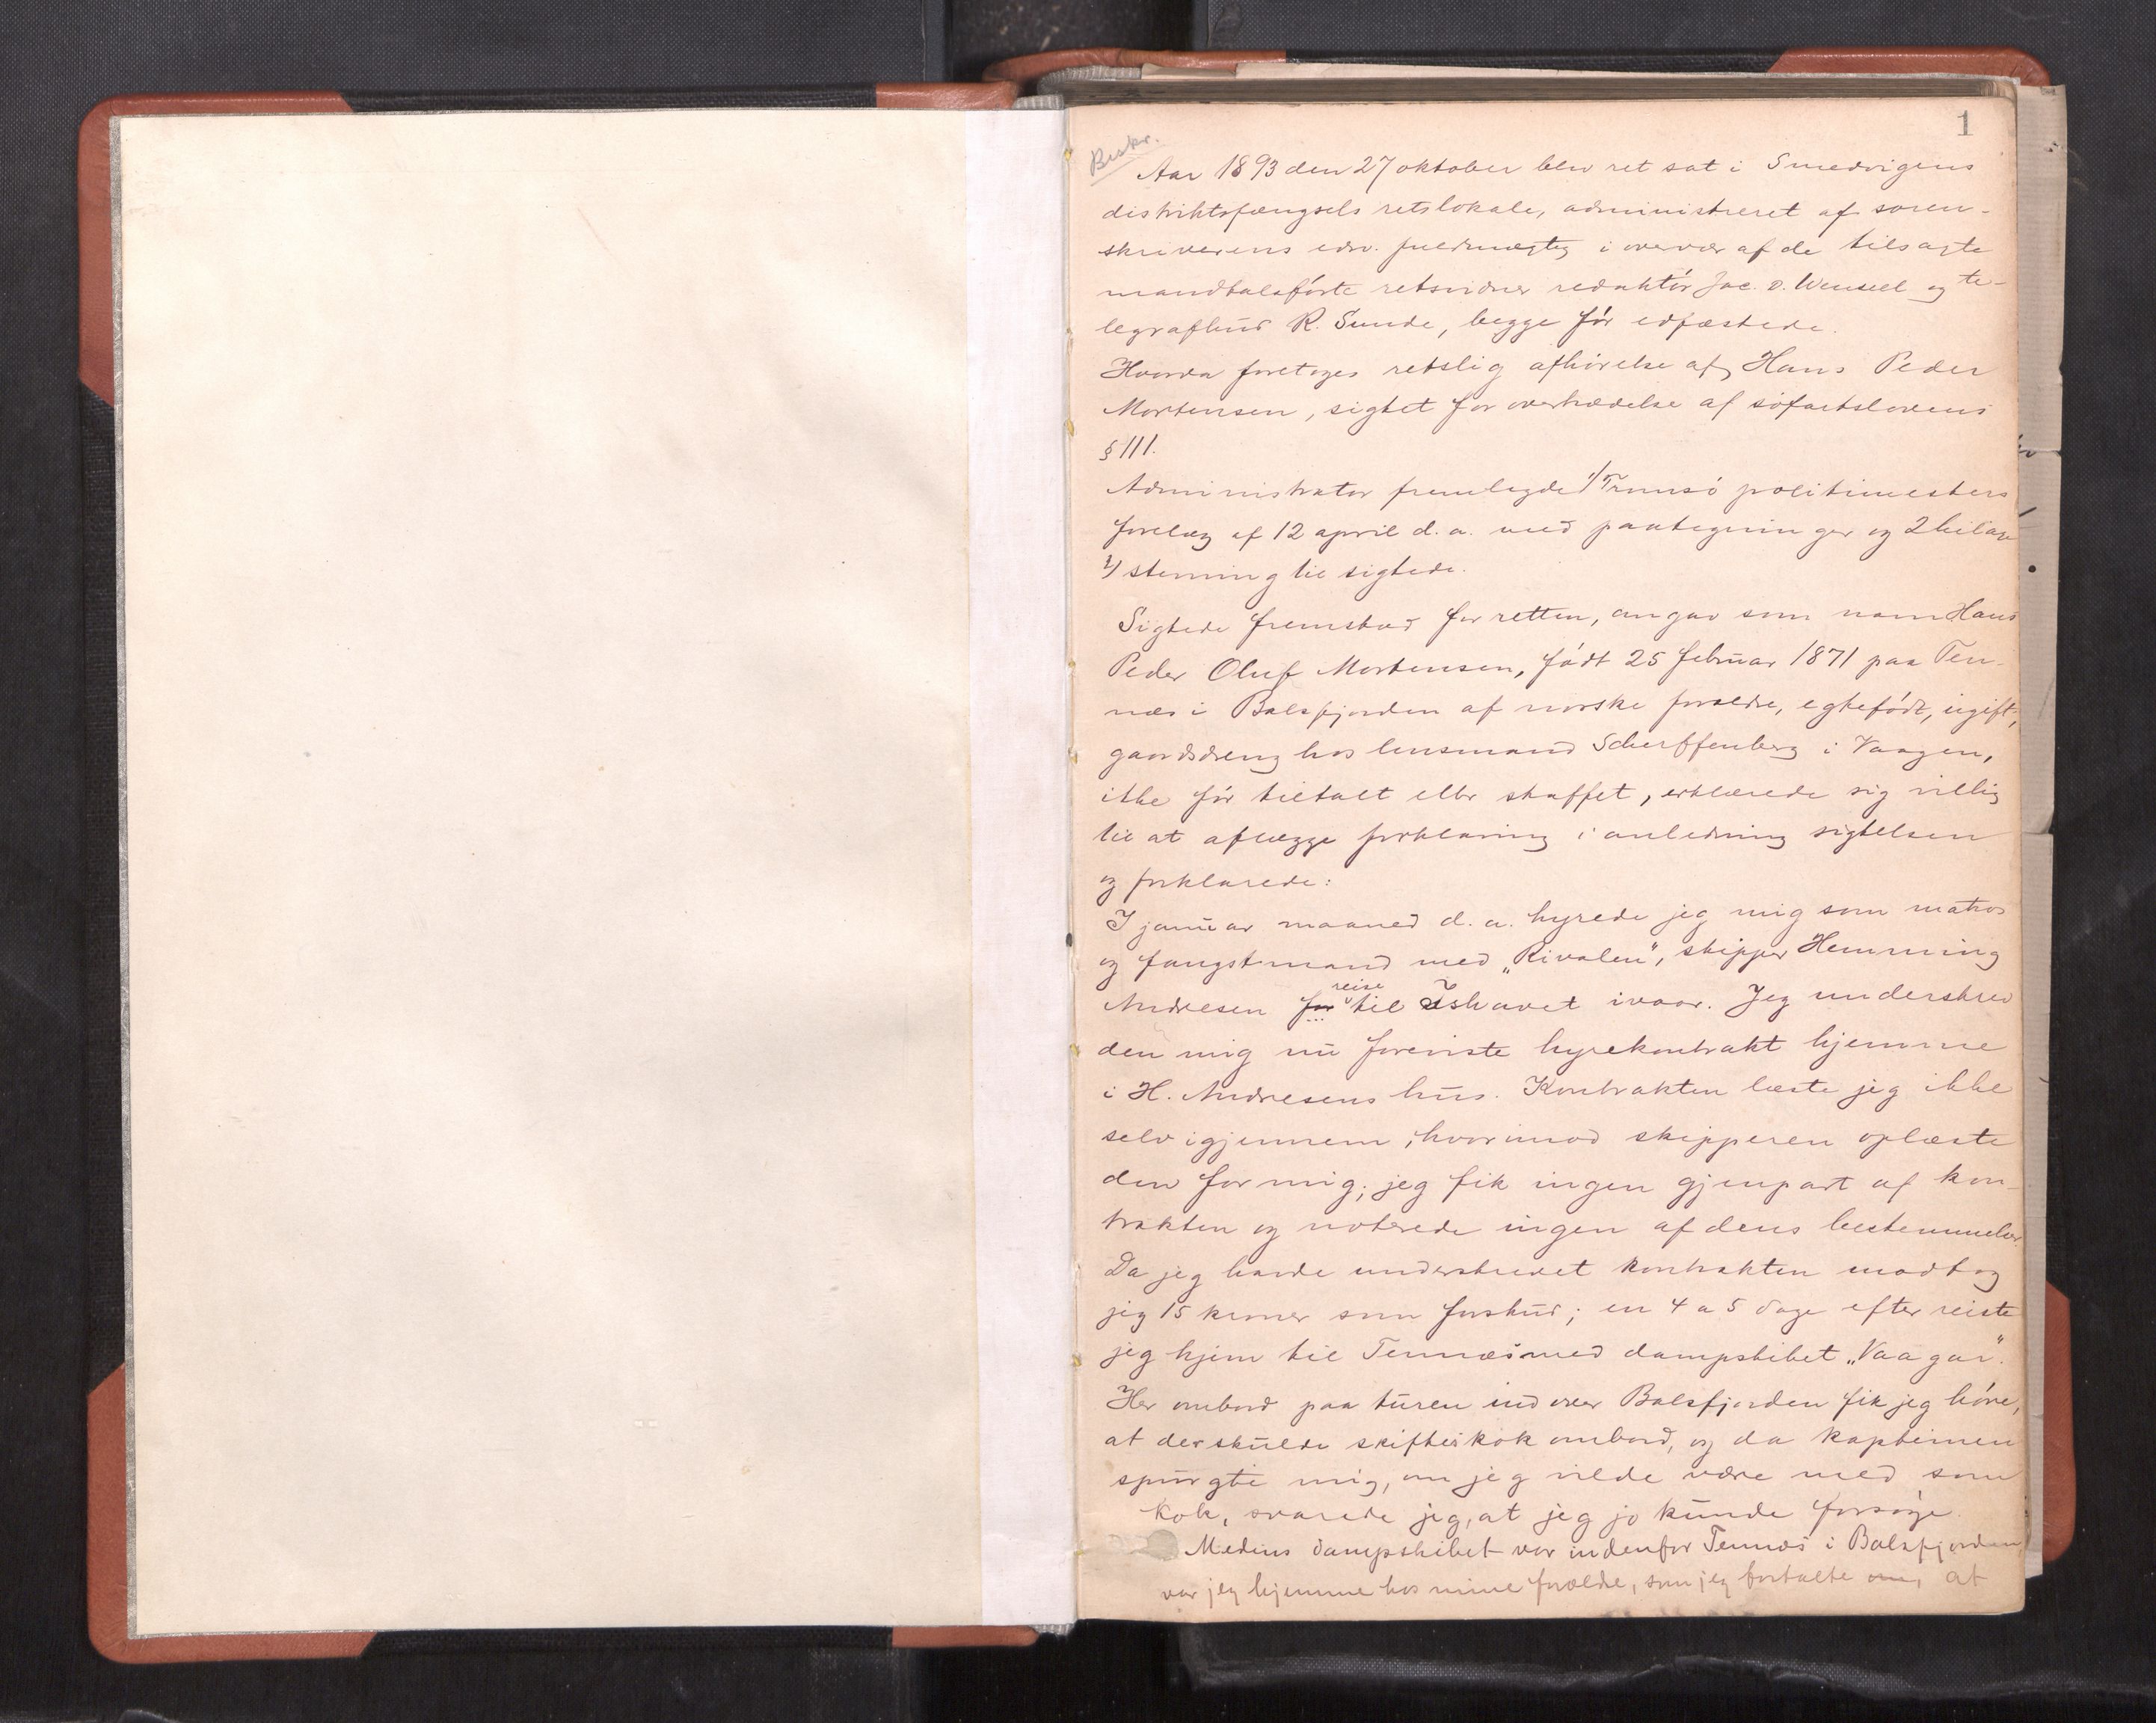 1
Beskr.
Aar 1893 den 27 oktober blev ret sat i Smedvigens
distriktsfængsels retslokale, administreret af soren-
skriverens edsv. fuldmægtig i overvær af de tilsagte
mandtalsførte retsvidner redaktør Jac. v. Wensell og te-
legrafbud R. Sunde, begge før edfæstede.
Hvorda foretoges retslig afhørelse af Hans Peder
Mortensen, sigtet for overtrædelse af søfartslovens
§ 111.
Administrator fremlagde 1/ Tromsø politimesters
forelæg af 12 april d. a. med paategninger og 2 bilage
2/ stevning til sigtede.
Sigtede fremstod for retten, angav som navn Hans
Peder Oluf Mortensen, født 25 februar 1871 paa Ten-
næs i Balsfjorden af norske forældre, egtefødt, ugift,
gaardsdreng hos lensmand Scherffenberg i Vaagen,
ikke før tiltalt eller straffet, erklærede sig villig
til at aflægge forklaring i anledning sigtelsen
og forklarede:
I januar maaned d. a. hyrede jeg mig som matros
og fangstmand med „Rivalen“, skipper Hemming
Andresen for reise til Ishavet ivaar. Jeg underskrev
den mig nu foreviste hyrekontrakt hjemme
i H. Andresens hus. Kontrakten læste jeg ikke
selv igjennem, hvorimod skipperen oplæste
den for mig; jeg fik ingen gjenpart af kon-
trakten og noterede ingen af dens bestemmelser.
Da jeg havde underskrevet kontrakten modtog
jeg 15 kroner som forskud; en 4 a 5 dage efter reiste
jeg hjem til Tennæs med dampskibet „Vaagar“.
Her ombord paa turen indover Balsfjorden fik jeg høre,
at der skulde skiftes kok ombord, og da kapteinen
spurgte mig, om jeg vilde være med som
kok, svarede jeg, at jeg jo kunde forsøge.
Medens dampskibet var indenfor Tennæs i Balsfjorden
var jeg hjemme hos mine forældre, som jeg fortalte om, at